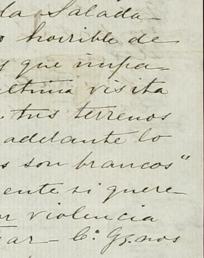 da Salada
horrible de
y que impa-
ultima visita
tus terrenos
adelante lo
s son francos"
ente si quere
or violencia
tar C. Gz. nos